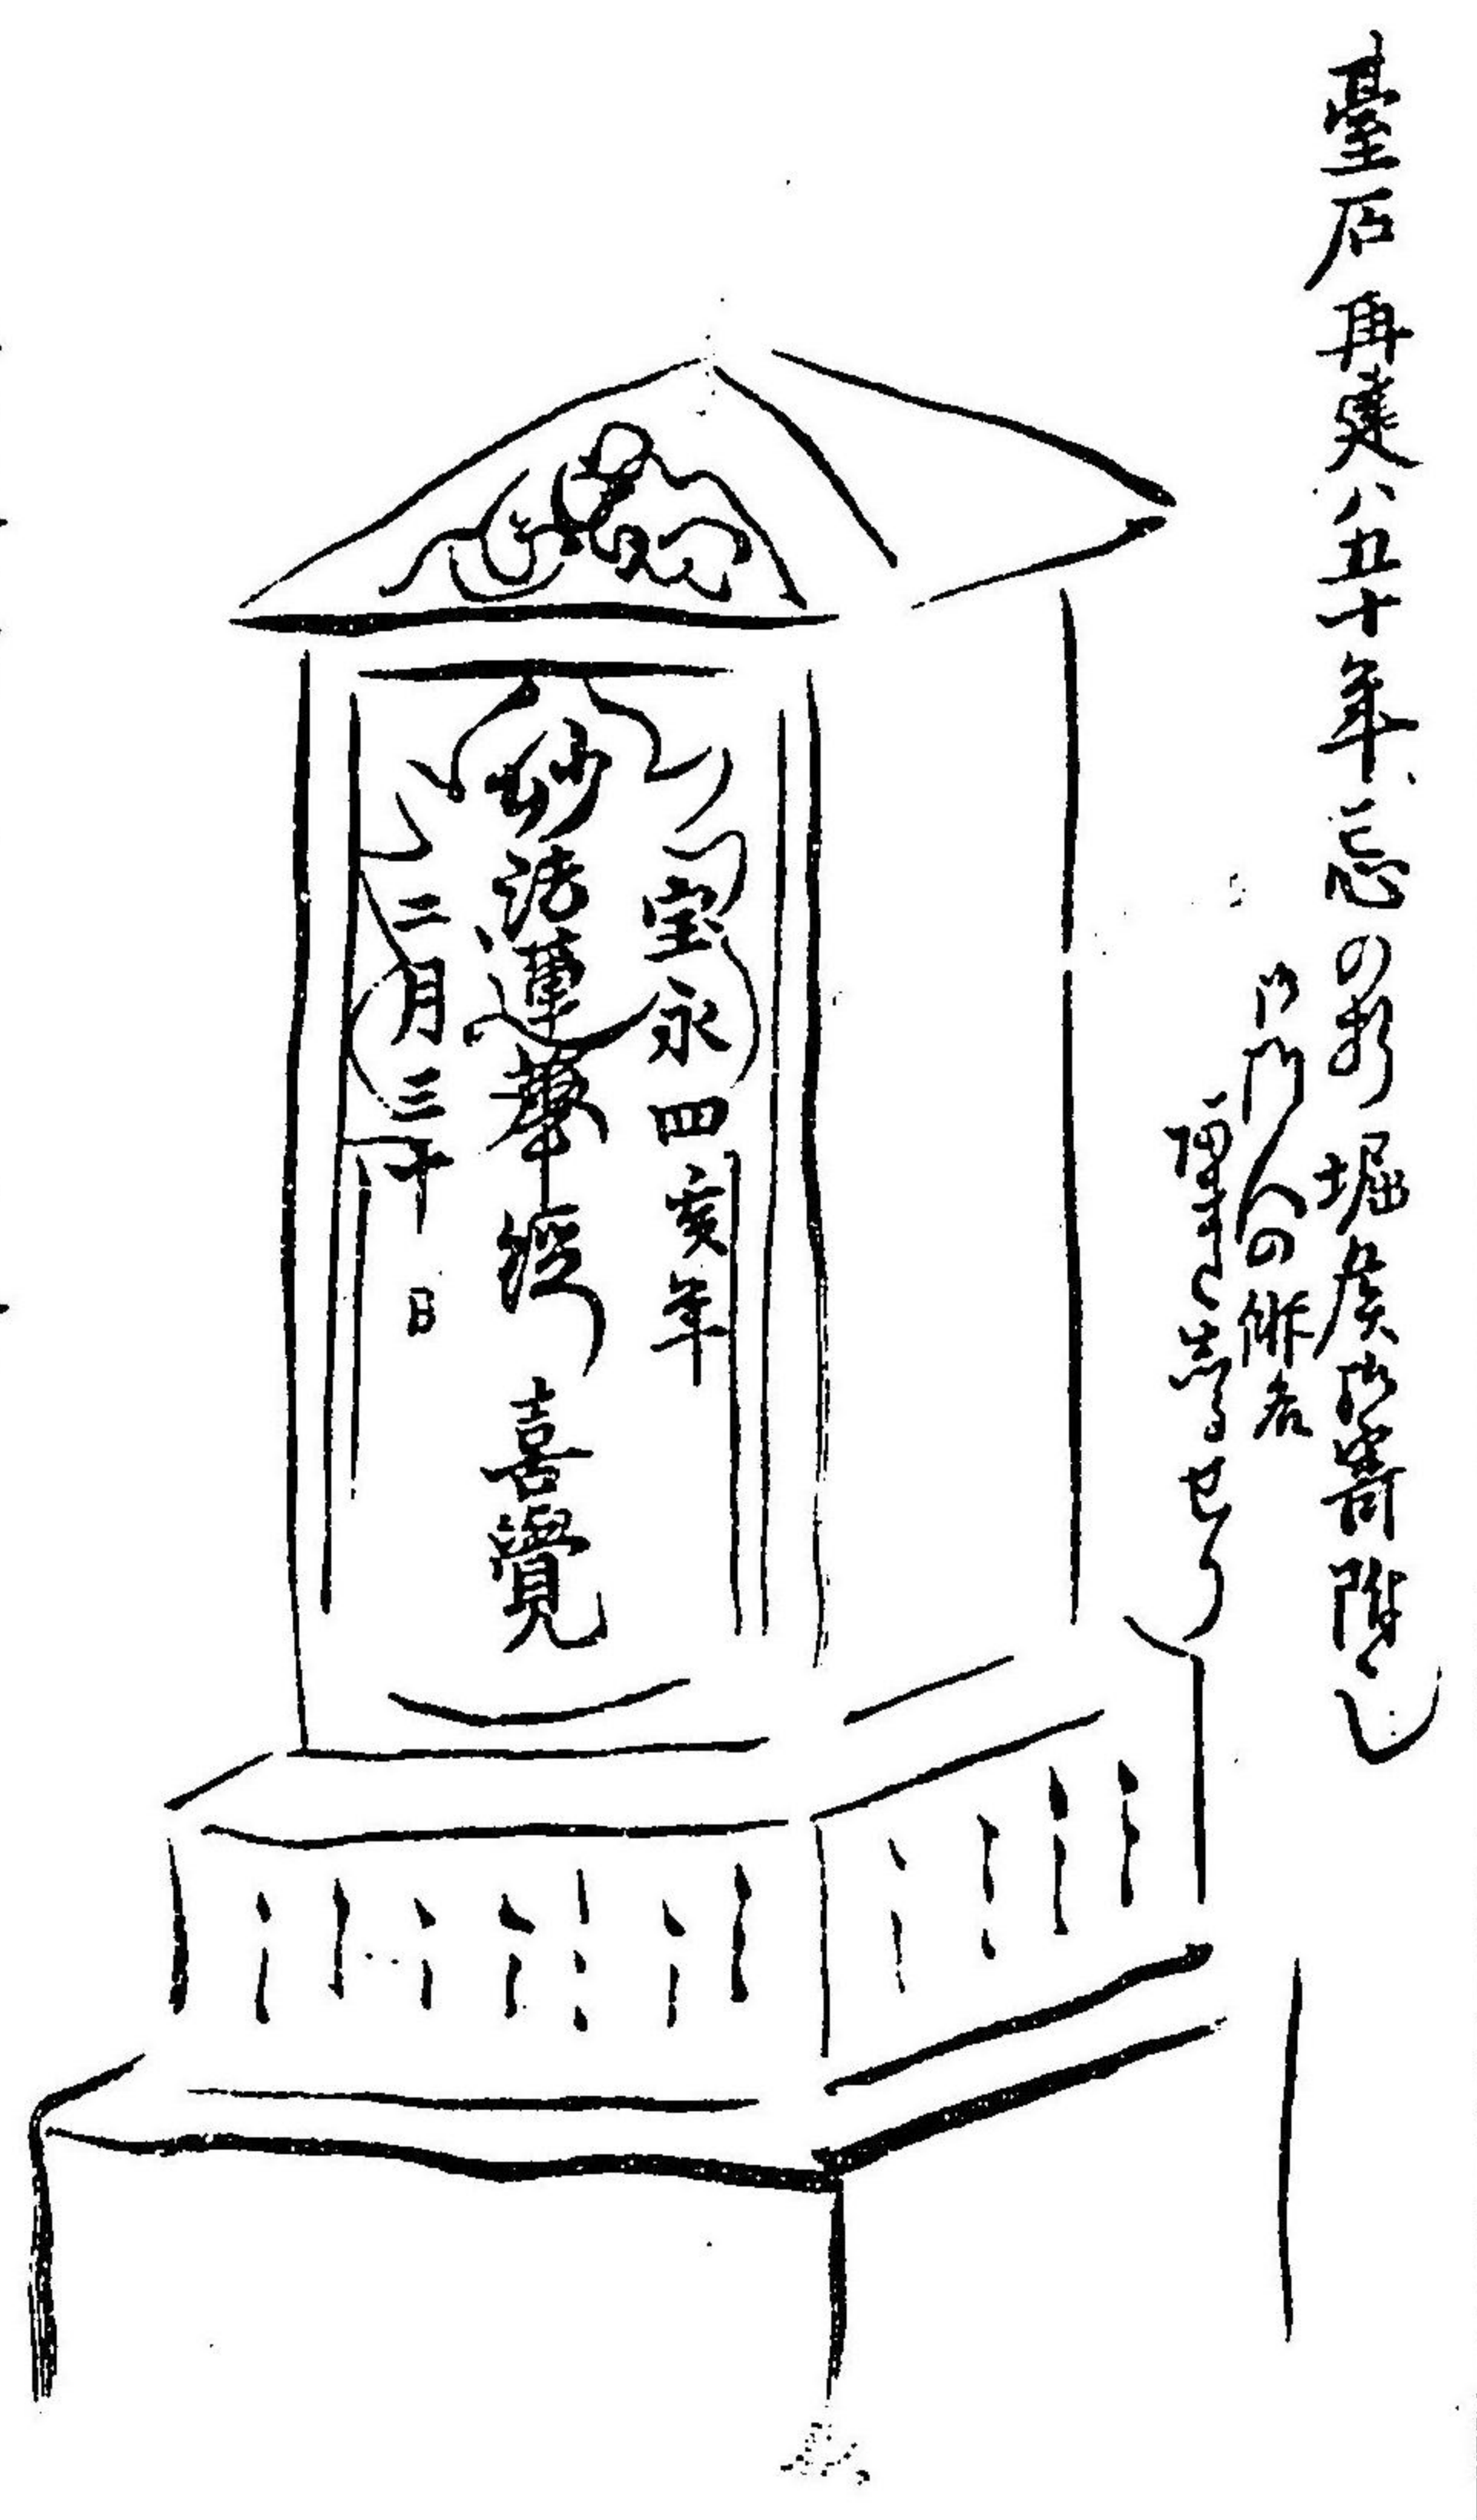 臺石再建ハ五十年忌の砌堀矦御寄附し
御門人の俳名
彫
宝永四亥年
妙法蓮華経喜覺
二月三十日